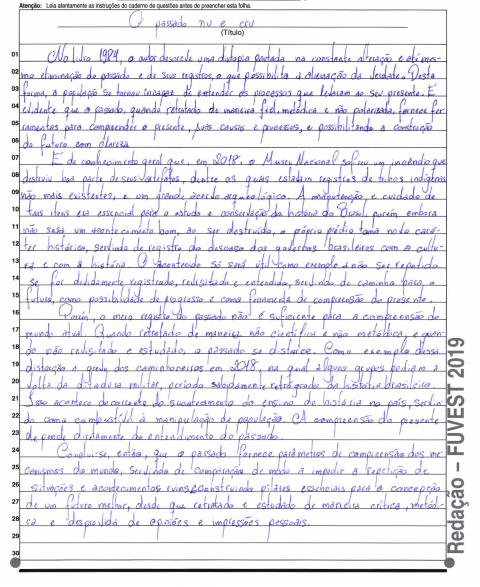 Atenção: Leia atentamente as instruções do caderno de questões antes de preencher esta folha.
O passado nu e cru
(Título)
01 No livro 1984, o autor descreve uma distopia pautada na constante alteração e até mes-
02 mo eliminação do passado e de seus registros, o que possibilita a alienação da verdade. Desta
03 forma, a população se tornou incapaz de entender os processos que levaram ao seu presente. É
04 evidente que o passado, quando retratado de maneira fiel, metódica e não polarizada, fornece fer-
05 ramentas para compreender o presente, suas causas e processos, e possibilitando a construção
06 do futuro com clareza.
07 É de conhecimento geral que, em 2018, o Museu Nacional sofreu um incêndio que
08 destruiu boa parte de seus artefatos, dentre os quais estavam registros de tribos indígenas
09 não mais existentes, e um grande acervo arqueológico. A manutenção e cuidado de
10 tais itens era essencial para o estudo e conservação da história do Brasil, porém embora
11 não seja um acontecimento bom, ao ser destruído, o próprio prédio toma novo cará-
12 ter histórico, servindo de registro do descaso dos governos brasileiros com a cultu-
13 ra e com a história. O acontecido só será útil como exemplo a não ser repetido
14 se for devidamente registrado, revisitado e entendido, servindo de caminho para o
15 futuro, como possibilidade de progresso e como ferramenta de compreensão do presente.
16 Porém, o mero registro do passado não é suficiente para a compreensão do
17 mundo atual. Quando retratado de maneira não científica e não metódica, e quan-
18 do não revisitado e estudado, o passado se distorce. Como exemplo dessa
19 distorção a greve dos caminhoneiros em 2018, na qual alguns grupos pediam a
20 volta da ditadura militar, período sabidamente retrógrado da história brasileira.
21 Isso acontece decorrente do sucateamento do ensino de história no país, servin-
22 do como combustível à manipulação da população. A compreensão do presente
23 depende diretamente do entendimento do passado.
24 Conclui-se, então, que o passado fornece parâmetros de compreensão dos me-
25 canismos do mundo, servindo de comparação de modo a impedir a repetição de
26 situações e acontecimentos ruins construindo pilares essenciais para a concepção
27 de um futuro melhor, desde que retratado e estudado de maneira crítica, metódi-
28 ca e desprovida de opiniões e impressões pessoais.
29
30
Redação – FUVEST 2019